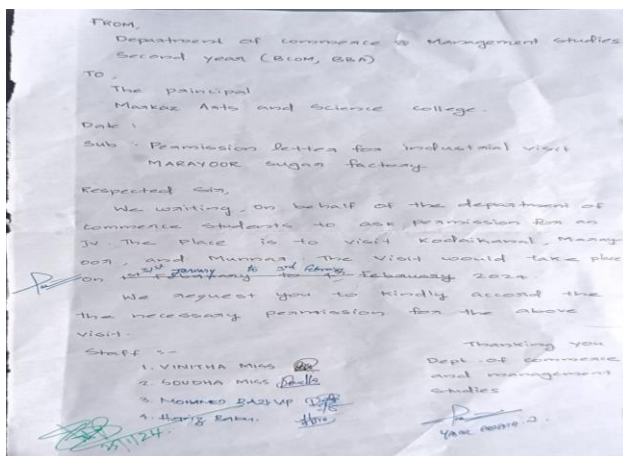 FROM,
Department of commerce & Management studies
Second year (BCOM, BBA)
TO,
The principal
Markaz Arts and Science college.
Date :
Sub : Permission letter for industrial visit
MARAYOOR sugar factory
Respected Sir,
We writing, on behalf of the department of
commerce students to ask permission for an
IV. The place is to visit Kodaikanal, Maray
oor, and Munnar. The visit would take place
31st January to 3rd February
on 1st February to February 2024
We request you to kindly accord the
the necessary permission for the above
visit.
Staff :-
1. VINITHA MISS
2. SOUDHA MISS
3. MOHAMMED
4.
Thanking you
Dept. of commerce
and management
studies